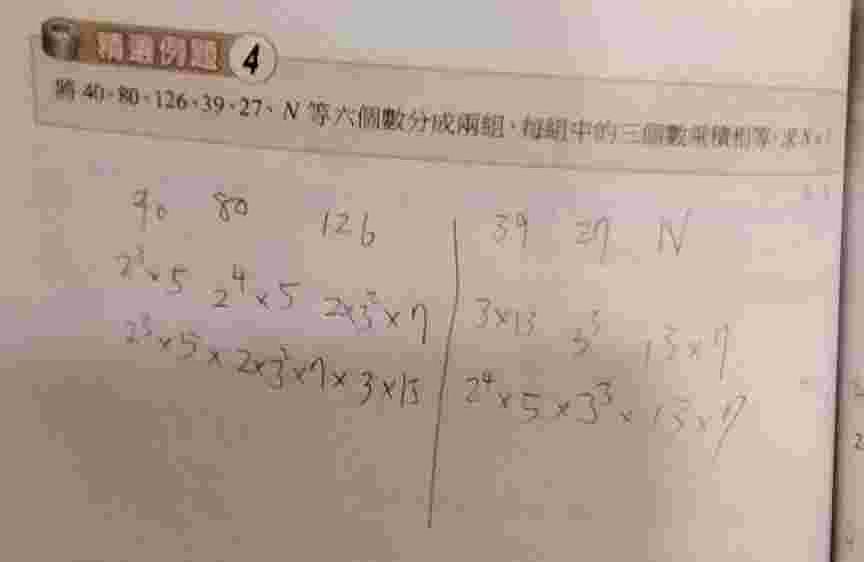 精選例題 4
將 40、80、126、39、27、N 等六個數分成兩組,每組中的三個數乘積相等,求N=?
40 80 126 39 27 N
2³×5 2⁴×5 2×3²×7 3×13 3³ 13×7
2³×5×2×3²×7×3×13 2⁴×5×3³×13×7